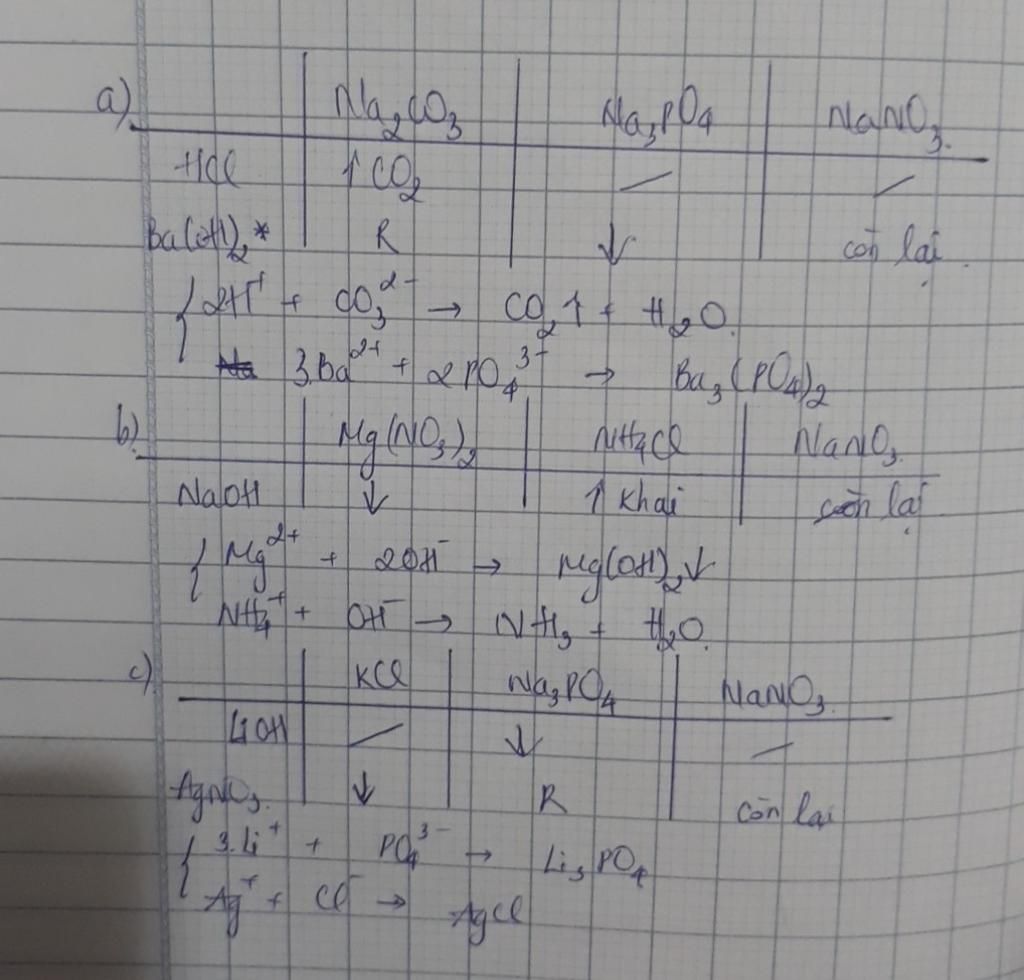 a) Na₂CO₃ Na₃PO₄ NaNO₃.
HCl ↑ CO₂ — —
Ba(OH)₂* R ↓ còn lại.
2H⁺ + CO₃²⁻ → CO₂↑ + H₂O.
3.Ba²⁺ + 2PO₄³⁻ → Ba₃(PO₄)₂
b) Mg(NO₃)₂ NH₄Cl NaNO₃.
NaOH ↓ ↑ khai còn lại
Mg²⁺ + 2OH⁻ → Mg(OH)₂↓
NH₄⁺ + OH⁻ → NH₃ + H₂O.
c) KCl Na₃PO₄ NaNO₃.
LiOH — ↓ —
AgNO₃. ↓ R còn lại
3.Li⁺ + PO₄³⁻ → Li₃PO₄
Ag⁺ + Cl⁻ → AgCl